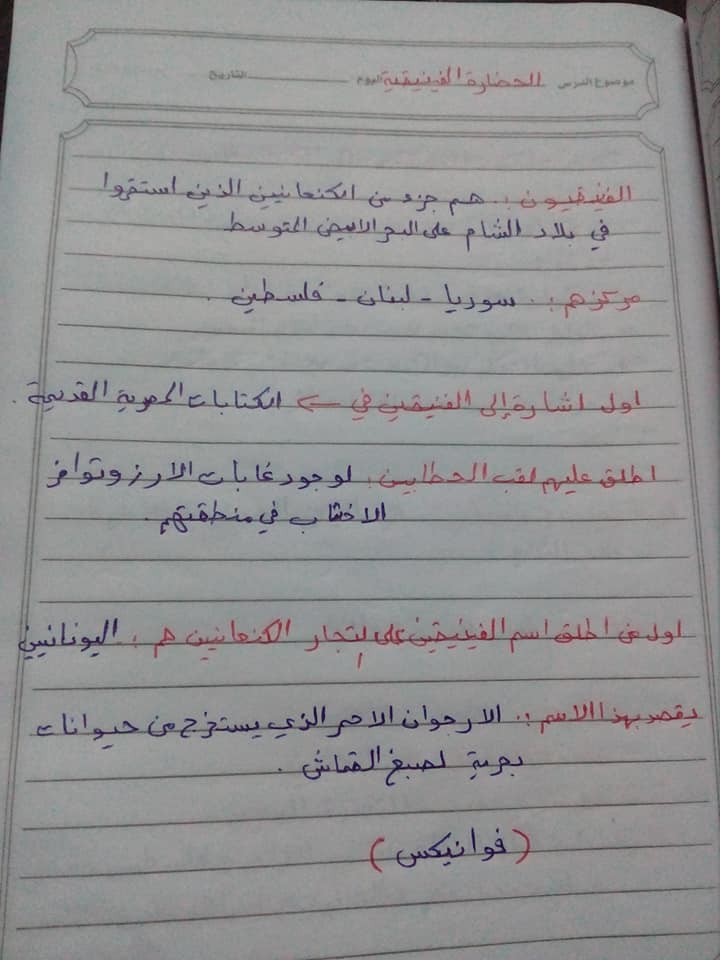 موضوع الدرس الحضارة الفينيقية اليوم التاريخ
الفينيقيون : هم جزء من الكنعانيين الذين استقروا
في بلاد الشام على البحر الابيض المتوسط
مركزهم : سوريا - لبنان - فلسطين .
اول اشارة إلى الفنيقين في ← الكتابات المصرية القديمة .
اطلق عليهم لقب الحطابين : لوجود غابات الارز وتوافر
الاخشاب في منطقتهم .
اول من اطلق اسم الفينيقين على التجار الكنعانين هم : اليونانيين
يقصد بهذا الاسم : الارجوان الاحمر الذي يستخرج من حيوانات
بحرية لصبغ القماش .
( فوانيكس )